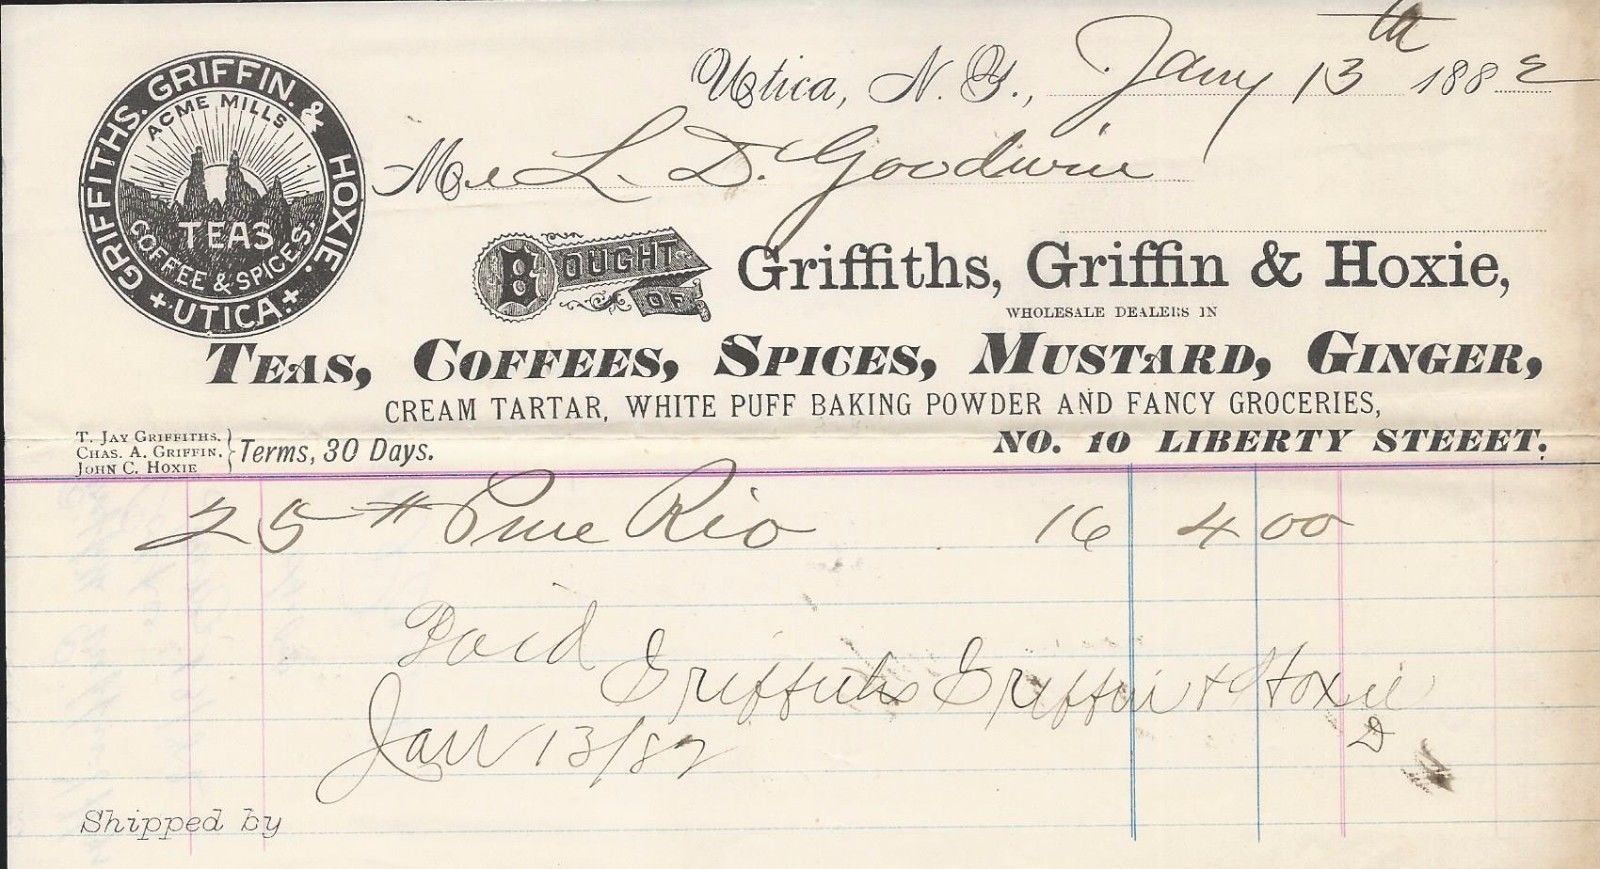 GRIFFITHS. GRIFFIN. & HOXIE.
ACME MILLS
TEAS
COFFEE & SPICES.
+ UTICA. +
Utica, N. Y., Jany 13th 1882
Mr L. D. Goodwin
BOUGHT OF
Griffiths, Griffin & Hoxie,
WHOLESALE DEALERS IN
TEAS, COFFEES, SPICES, MUSTARD, GINGER,
CREAM TARTAR, WHITE PUFF BAKING POWDER AND FANCY GROCERIES,
T. JAY GRIFFITHS.
CHAS. A. GRIFFIN.
JOHN C. HOXIE
Terms, 30 Days.
NO. 10 LIBERTY STEEET.
25 # Pure Rio 16 4 00
Paid
Griffiths Griffin & Hoxie
D
Jan 13/82
Shipped by